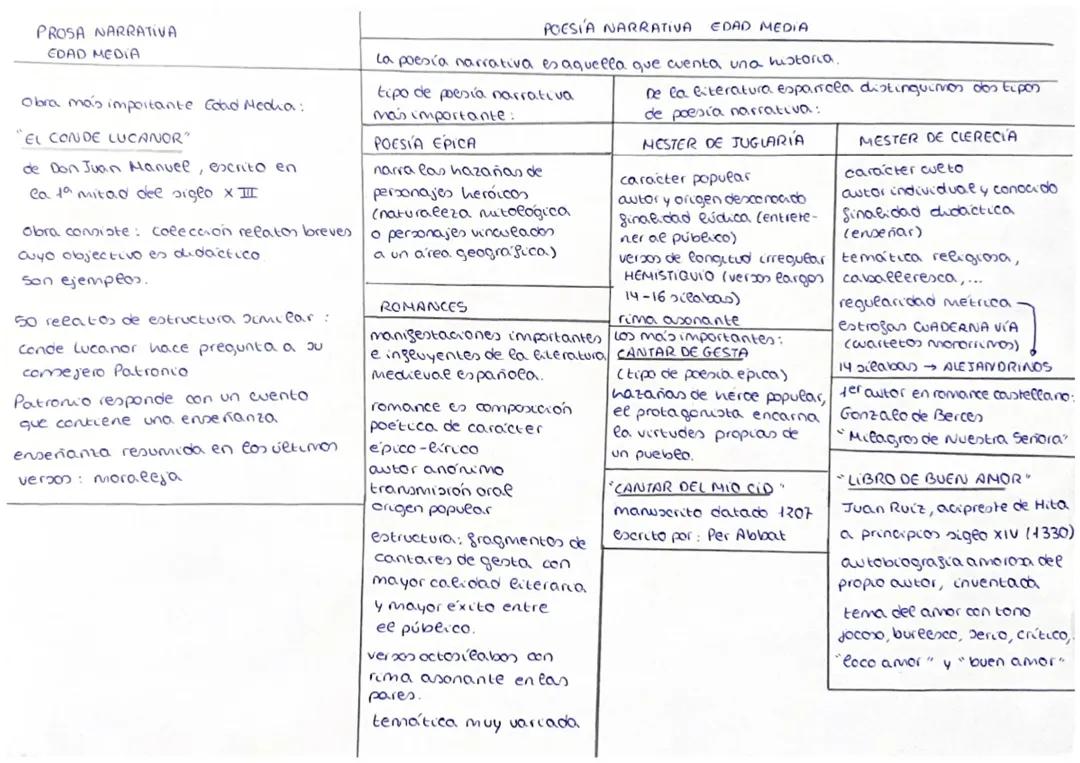 PROSA NARRATIVA
EDAD MEDIA
Obra más importante Edad Media:
"EL CONDE LUCANOR"
de Don Juan Manuel, escrito en
la 1ª mitad del siglo XIII
Obra consiste: colección relatos breves
cuyo objectivo es didáctico
son ejemplos.
50 relatos de estructura similar:
Conde Lucanor hace pregunta a su
consejero Patronio
Patronio responde con un cuento
que contiene una enseñanza
enseñanza resumida en los últimos
versos: moraleja
POESÍA NARRATIVA EDAD MEDIA
La poesía narrativa es aquella que cuenta una historia.
tipo de poesía narrativa
más importante:
POESÍA ÉPICA
narra las hazañas de
personajes heroicos
(naturaleza mitológica
o personajes vinculados
a un área geográfica)
ROMANCES
manifestaciones importantes
e influyentes de la literatura
medieval española.
romance es composición
poética de carácter
épico-lírico
autor anónimo
transmisión oral
origen popular
estructura: fragmentos de
cantares de gesta con
mayor calidad literaria
y mayor éxito entre
el público.
versos octosílabos con
rima asonante en las
pares.
temática muy variada
De la literatura española distinguimos dos tipos
de poesía narrativa:
MESTER DE JUGLARÍA
carácter popular
autor y origen desconocido
finalidad lúdica (entrete-
ner al público)
versos de longitud irregular
HEMISTIQUIO (versos largos
14-16 sílabas)
rima asonante
Los más importantes:
CANTAR DE GESTA
(tipo de poesía épica)
hazañas de héroe popular,
el protagonista encarna
la virtudes propias de
un pueblo.
"CANTAR DEL MIO CID"
manuscrito datado 1207
escrito por: Per Abbat
MESTER DE CLERECÍA
carácter culto
autor individual y conocido
finalidad didáctica
(enseñar)
temática religiosa,
caballeresca,...
regularidad métrica
estrofas CUADERNA VÍA
(cuartetos monorrimos)
14 sílabas → ALEJANDRINOS
1er autor en romance castellano:
Gonzalo de Berces
"Milagros de Nuestra Señora"
"LIBRO DE BUEN AMOR"
Juan Ruíz, acipreste de Hita
a principios siglo XIV (1330)
autobiografía amorosa del
propio autor, inventada
tema del amor con tono
jocoso, burlesco, serio, crítico,
"loco amor" y "buen amor"